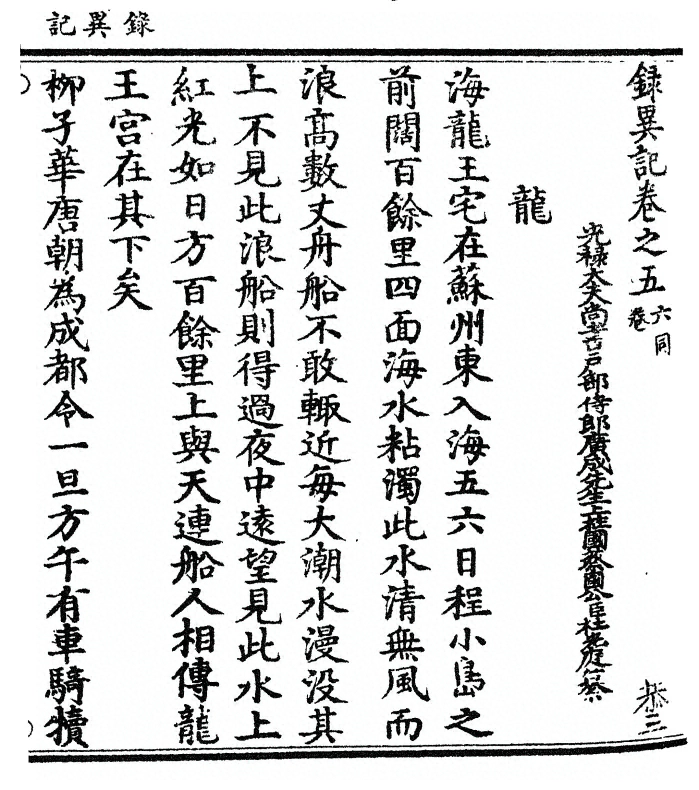 錄異記
録異記卷之五 六同卷 恭三
光祿大夫尚書戶部侍郎廣成先生上柱國蔡國公臣杜光庭纂
龍
海龍王宅在蘇州東入海五六日程小島之
前闊百餘里四面海水粘濁此水清無風而
浪高數丈舟船不敢輙近每大潮水漫沒其
上不見此浪船則得過夜中遠望見此水上
紅光如日方百餘里上與天連船人相傳龍
王宮在其下矣
柳子華唐朝為成都令一旦方午有車騎犢